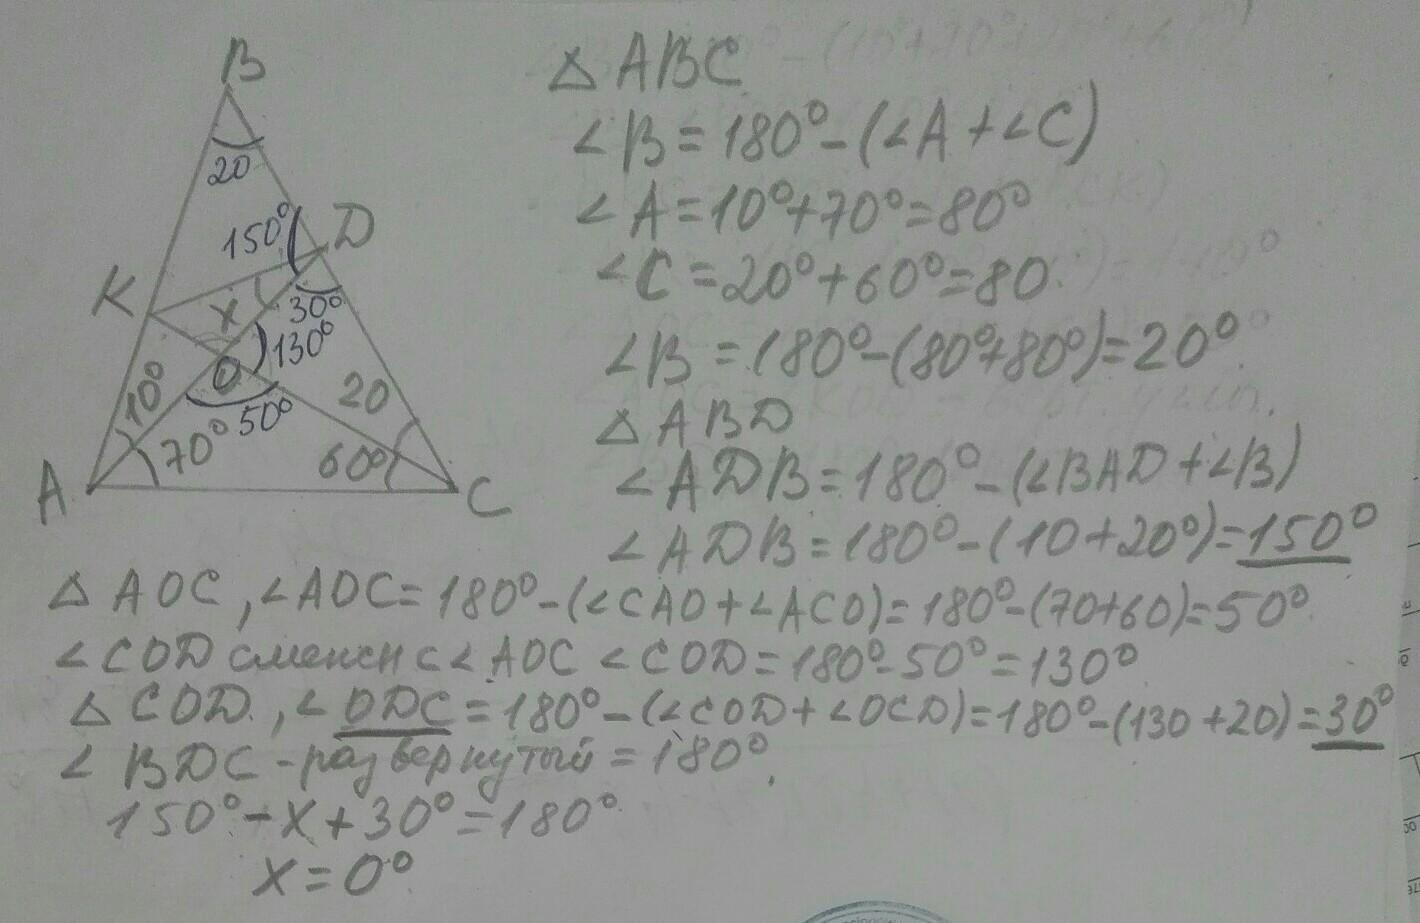 B
20
150°
D
K
x
30°
130°
O
10°
50°
20
70°
60°
A
C
△ ABC
∠B = 180° - (∠A + ∠C)
∠A = 10° + 70° = 80°
∠C = 20° + 60° = 80
∠B = 180° - (80° + 80°) = 20°
△ ABD
∠ADB = 180° - (∠BAD + ∠B)
∠ADB = 180° - (10 + 20°) = 150°
△ AOC, ∠AOC = 180° - (∠CAO + ∠ACO) = 180° - (70 + 60) = 50°
∠COD смежн с ∠AOC ∠COD = 180° - 50° = 130°
△ COD, ∠ODC = 180° - (∠COD + ∠OCD) = 180° - (130 + 20) = 30°
∠ BDC - развернутый = 180°
150° - x + 30° = 180°
x = 0°